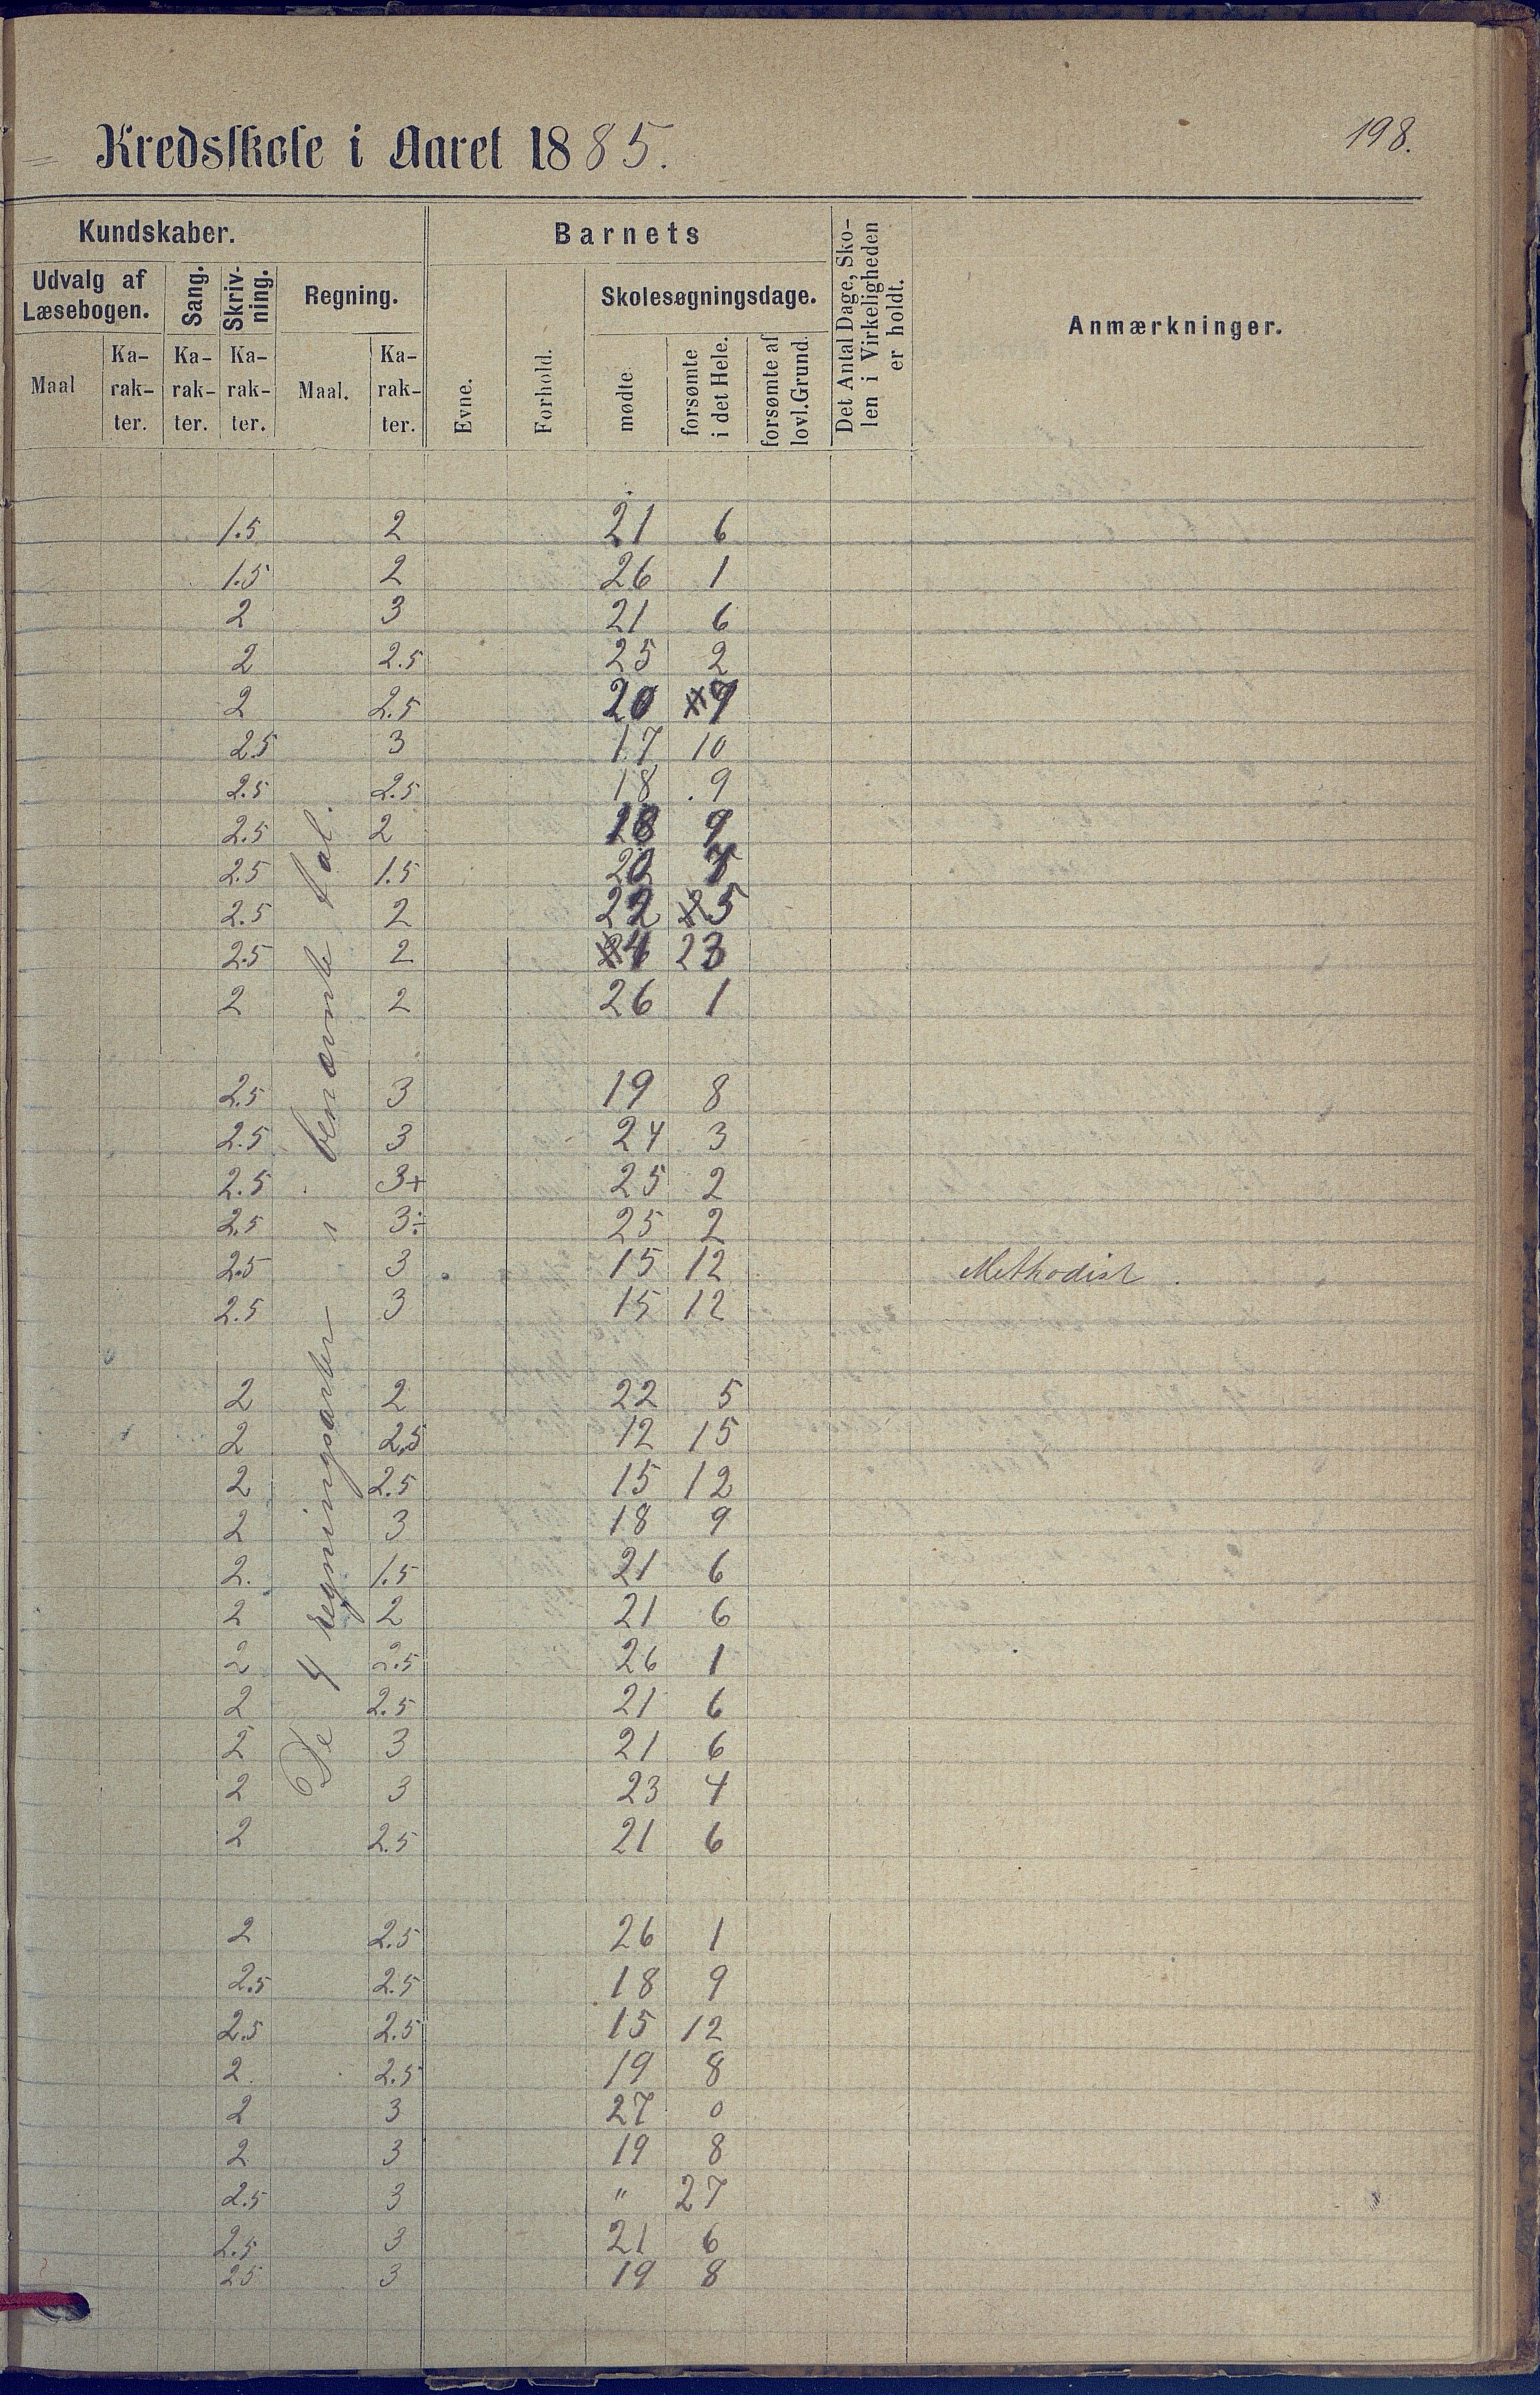 Kredsskole i Aaret 1885.
198.
Kundskaber.
Barnets
Det Antal Dage, Sko-
len i Virkeligheden
er holdt.
Anmærkninger.
Udvalg af
Læsebogen.
Sang.
Skriv-
ning.
Regning.
Skolesøgningsdage.
Maal
Ka-
rak-
ter.
Ka-
rak-
ter.
Ka-
rak-
ter.
Maal.
Ka-
rak-
ter.
Evne.
Forhold.
mødte
forsømte
i det Hele.
forsømte af
lovl. Grund.
De 4 regningsarter i benævnte tal.
1.5 2 21 6
1.5 2 26 1
2 3 21 6
2 2.5 25 2
2 2.5 20 7
2.5 3 17 10
2.5 2.5 18 9
2.5 2 18 9
2.5 1.5 20 7
2.5 2 22 5
2.5 2 4 23
2 2 26 1
2.5 3 19 8
2.5 3 24 3
2.5 3+ 25 2
2.5 3÷ 25 2
2.5 3 15 12 Methodist.
2.5 3 15 12
2 2 22 5
2 2.5 12 15
2 2.5 15 12
2 3 18 9
2. 1.5 21 6
2 2 21 6
2 2.5 26 1
2 2.5 21 6
2 3 21 6
2 3 23 4
2 2.5 21 6
2 2.5 26 1
2.5 2.5 18 9
2.5 2.5 15 12
2. 2.5 19 8
2 3 27 0
2 3 19 8
2.5 3 " 27
2.5 3 21 6
25 3 19 8